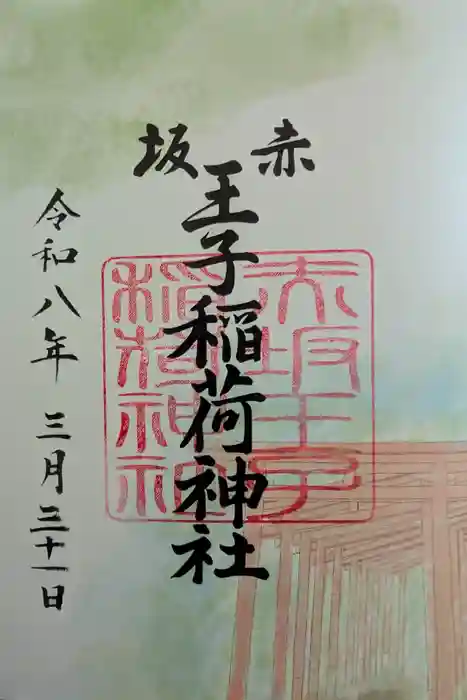 赤坂
王子稲荷神社
赤坂王子
稲荷神社
令和八年 三月三十一日